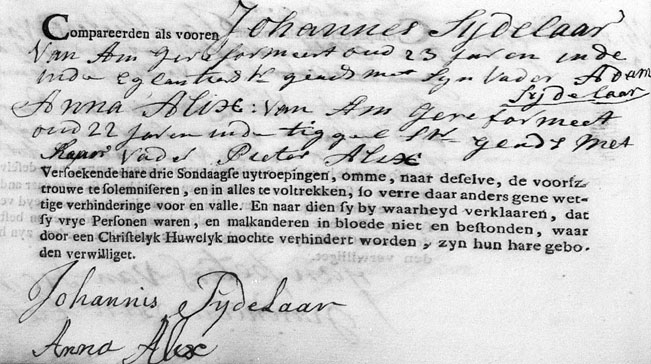 Compareerden als vooren Johannes Sydelaar
Van Am Gereformeert oud 23 Jaren in de
inde Eglantierst geads met syn Vader Adam
Sydelaar
Anna Alix: Van Am Gereformeert
oud 22 Jaren inde tiggel Str geads Met
haar Vader Pieter Alix
Versoekende hare drie Sondaagse uytroepingen, omme, naar deselve, de voorsz.
trouwe te solemniseren, en in alles te voltrekken, so verre daar anders gene wet-
tige verhinderinge voor en valle. En naar dien sy by waarheyd verklaaren, dat
sy vrye Personen waren, en malkanderen in bloede niet en bestonden, waar
door een Christelyk Huwelyk mochte verhindert worden, zyn hun hare gebo-
den verwilliget.
Johannis Tydelaar
Anna Alix